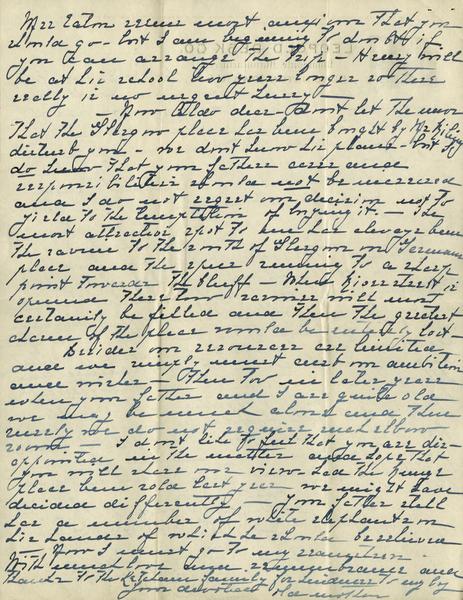 Mrs Eaton seems most anxious that you
should go - but I am beginning to doubt if
you can arrange the trip - Henry will
be at his school two years longer so there
really is no urgent hurry -
- Now Aldo dear - don't let the news
that the Shergow place has been bought by Mr
disturb you - We don't know his plans - but I
do know that your father's cares and
responsibilities should not be increased
and I do not regret our decision not to
yield to the temptation of buying it - The
most attractive spot to me has always been
the ravine to the north of on German
place and the spur running to a sharp
point towards the bluff - When street is
opened these two ravines will most
certainly be filled and then the greatest
charm of the place would be entirely lost -
Besides our resources are limited
and we surely must curb our ambition
and wishes - Then too in later years
when your father and I are quite old
we may be much alone and then
surely we do not require much elbow
room - I don't like to feel that you are dis-
appointed in the matter and hope that
you will share our views - Had the
place been sold last year we might have
decided differently - Your father still
has a number of white elephants on
his hands of which he should be relieved
- Now I must go to my
With much love and remembrance and
thanks to the Ketcham family for kindness to my boy
Your devoted Mother
LEOPOLD DESK CO.